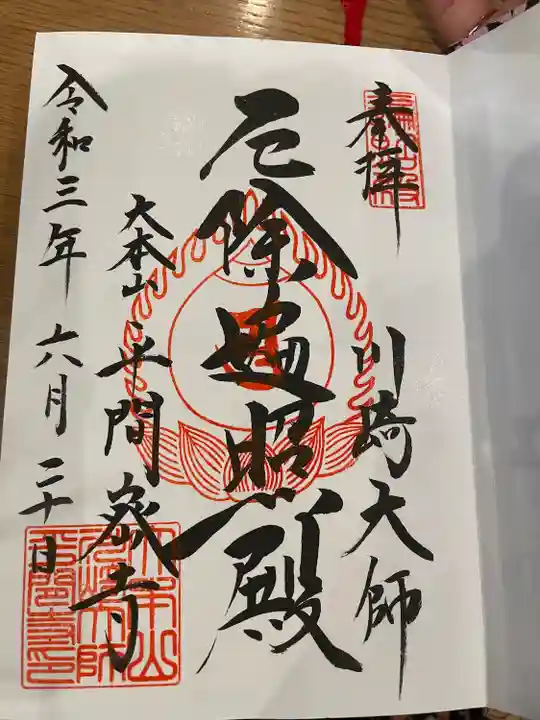 奉拝
川崎大師
厄除遍照殿
大本山 平間寺
令和三年 六月 二十日